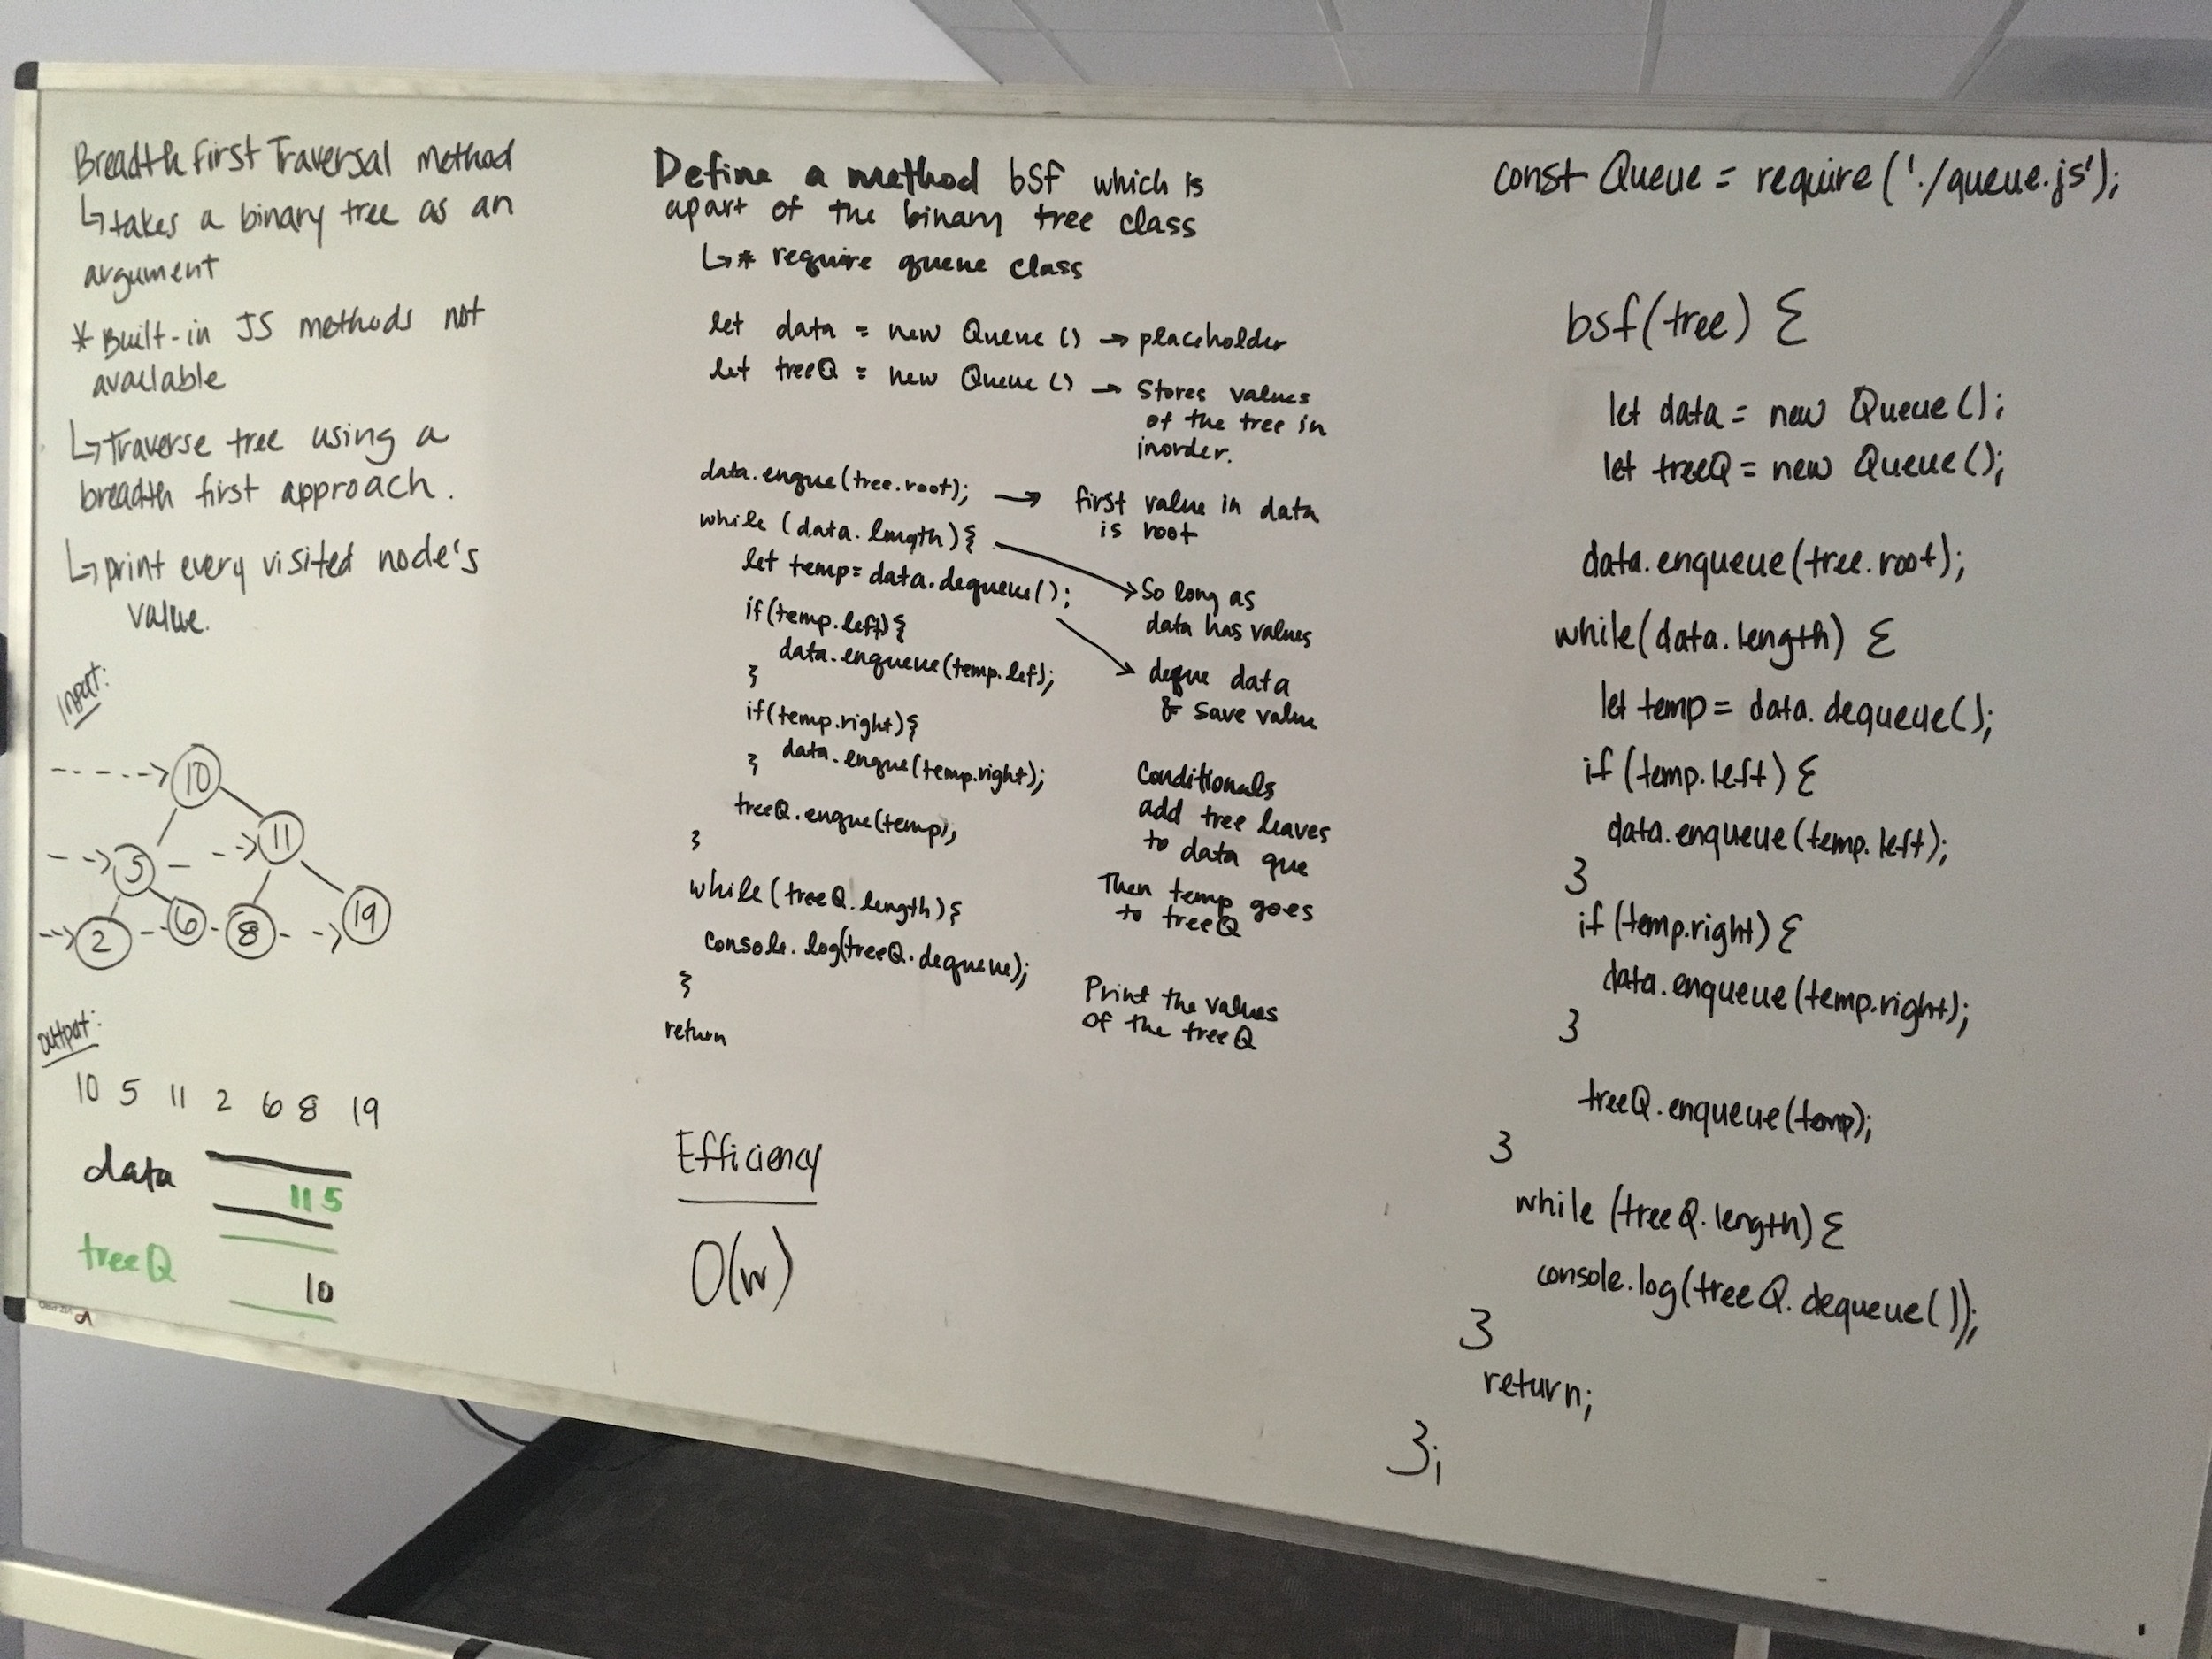 Breadth First Traversal method
↳ takes a binary tree as an
argument
* Built-in JS methods not
available
↳ Traverse tree using a
breadth first approach.
↳ print every visited node's
value.
Input:
10
11
5
2
6
8
19
Output:
10 5 11 2 6 8 19
data
11 5
treeQ
10
Define a method bsf which is
apart of the binary tree class
↳ * require queue class
let data = new Queue () → placeholder
let treeQ = new Queue () → Stores values
of the tree in
inorder.
data.enque(tree.root); → first value in data
is root
while (data.length) {
let temp = data.dequeue();
So long as
data has values
if (temp.left) {
data.enqueue(temp.left);
}
deque data
& save value
if (temp.right) {
data.enque(temp.right);
}
treeQ.enque(temp);
}
Conditionals
add tree leaves
to data que
Then temp goes
to treeQ
while (treeQ.length) {
console.log(treeQ.dequeue);
}
Print the values
of the treeQ
return
Efficiency
const Queue = require('./queue.js');
bsf(tree) {
let data = new Queue();
let treeQ = new Queue();
data.enqueue(tree.root);
while(data.length) {
let temp = data.dequeue();
if (temp.left) {
data.enqueue(temp.left);
}
if (temp.right) {
data.enqueue(temp.right);
}
treeQ.enqueue(temp);
}
while (treeQ.length) {
console.log(treeQ.dequeue());
}
return;
};